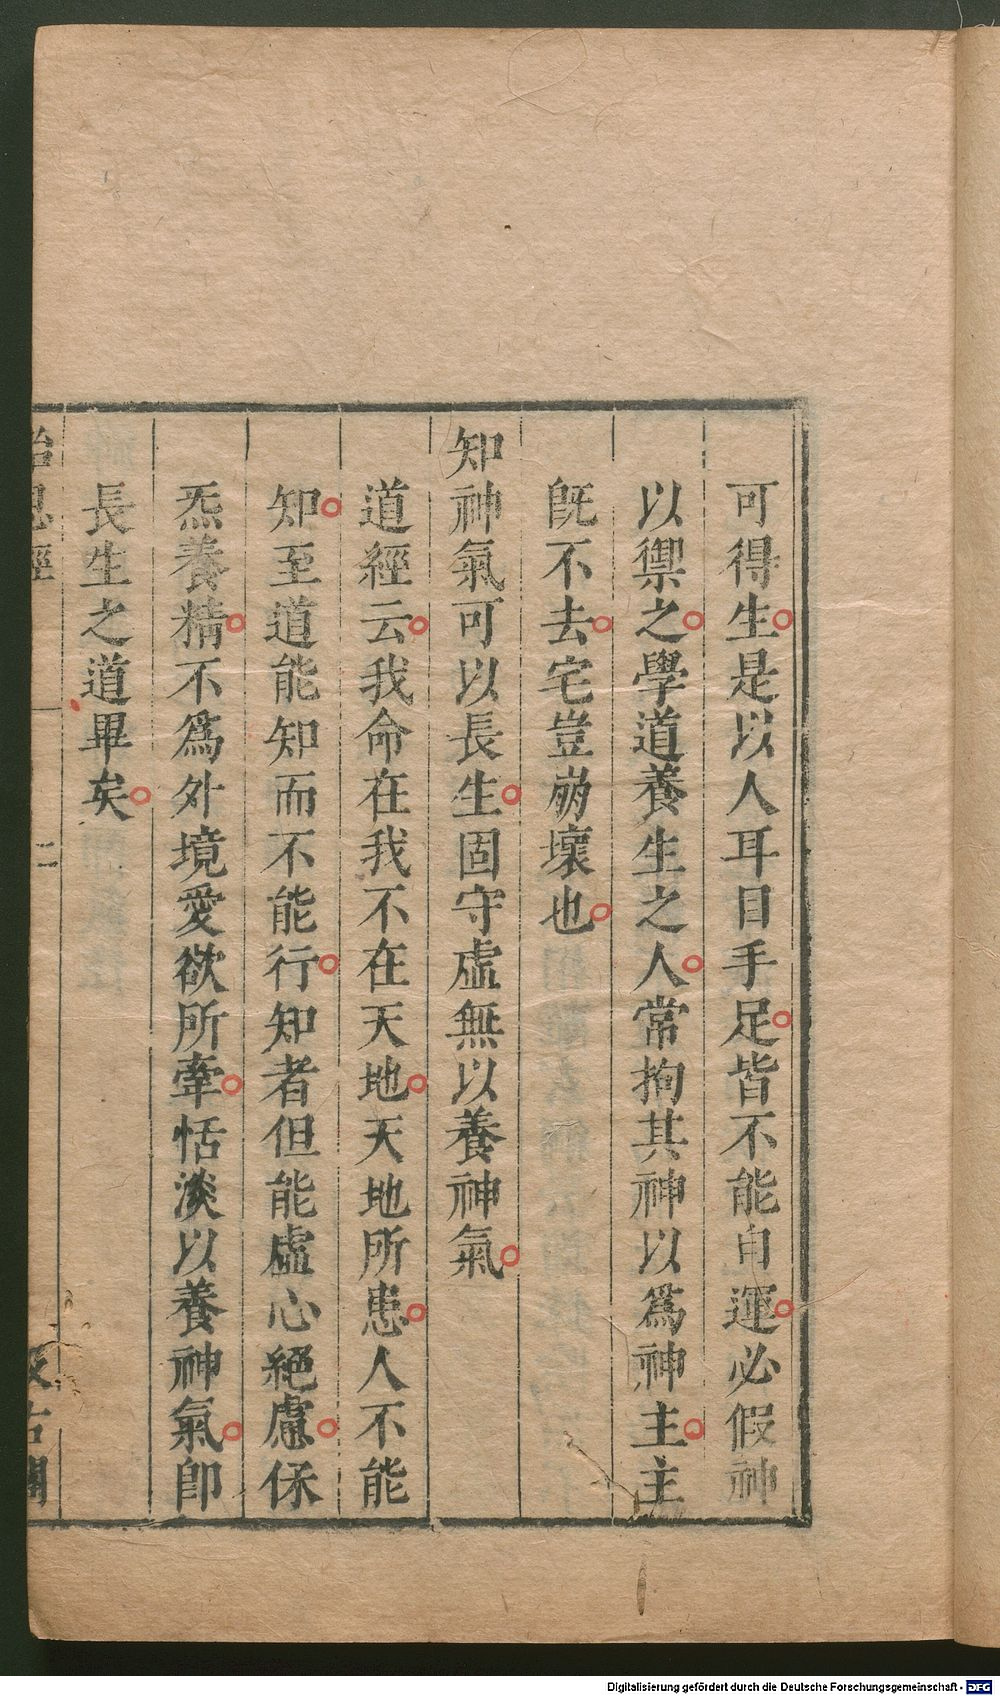 可得生是以人耳目手足皆不能自運必假神
以禦之學道養生之人常拘其神以爲神主主
旣不去宅豈崩壞也
知神氣可以長生固守虛無以養神氣
道經云我命在我不在天地天地所患人不能
知至道能知而不能行知者但能虛心絕慮保
炁養精不爲外境愛欲所牽恬淡以養神氣卽
長生之道畢矣
胎息經
二
汲古閣
Digitalisierung gefördert durch die Deutsche Forschungsgemeinschaft - DFG